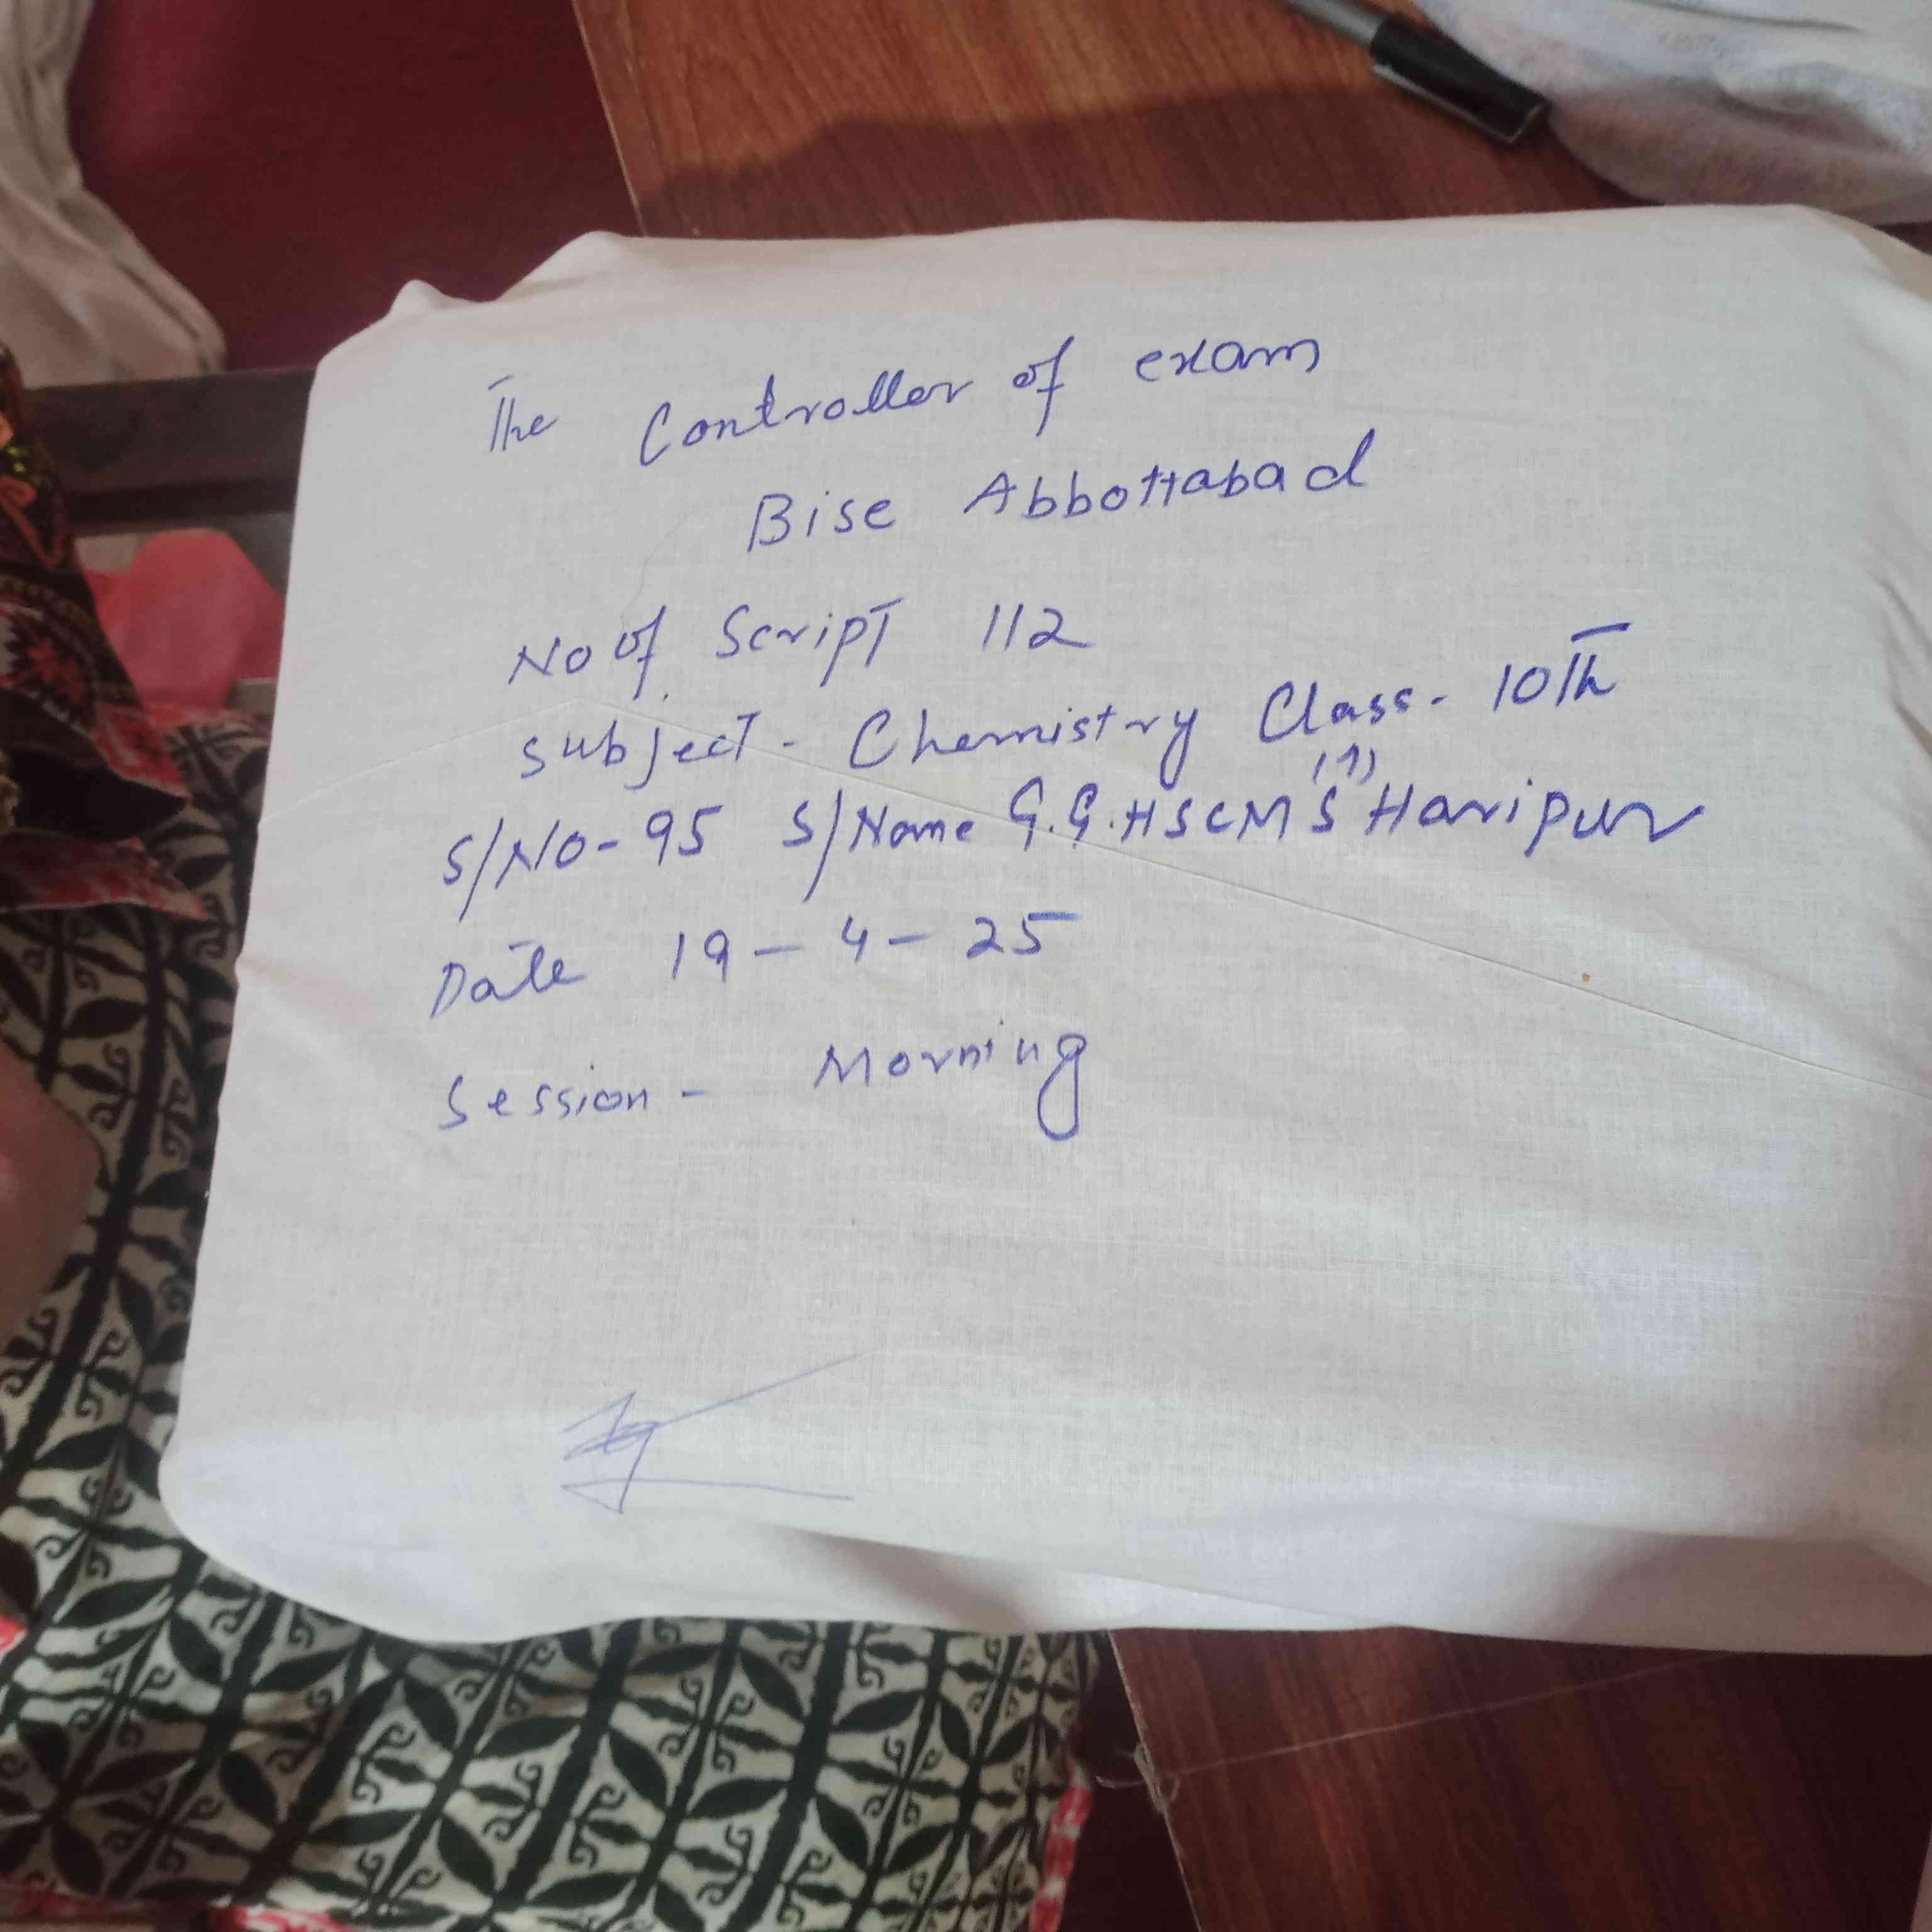 The Controller of exam
Bise Abbottabad
No of Script 112
Subject - Chemistry Class - 10th
(1)
S/No - 95 S/Name G.G.HSCMS Haripur
Date 19 - 4 - 25
Session - Morning